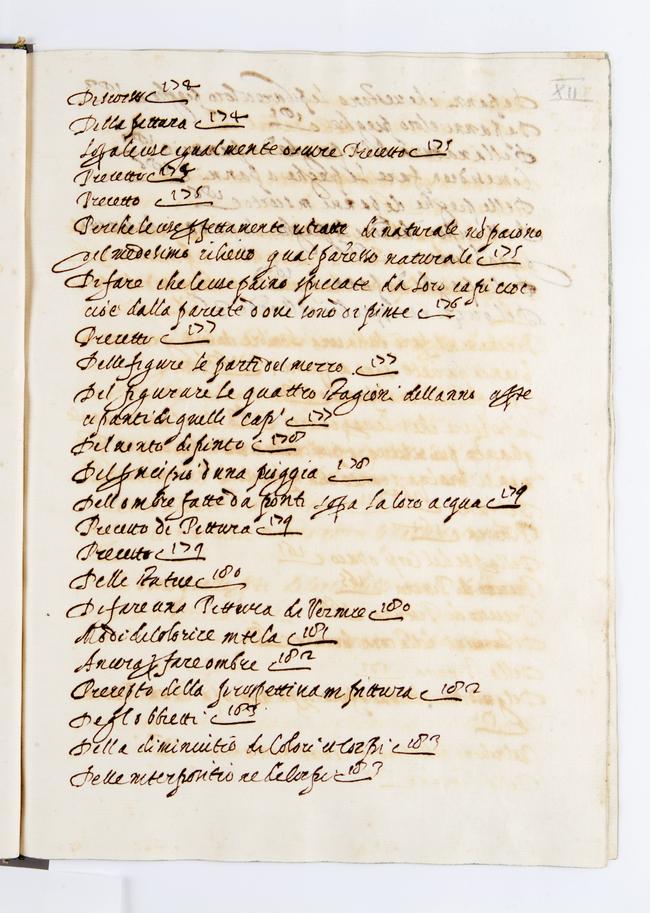 XII
Discorso 174
Della pittura 174
sopa le cose equalmente oscure Precetto 175
Precetto 175
Precetto 175
Perche le cose pfettamente ritratte di naturale nō paiono
del medesimo rilievo qual par esso naturale 175
Di fare che le cose paino spiccate da loro capi cioe
cioè dalla pariete dove sono dipinte 176
Precetto 177
Delle figure le parti del mezzo 177
Del figurare le quattro stagioni dell anno
parti di quelle 177
Del vento dipinto 178
Del principio d una pioggia 178
Dell ombre fatte da ponti sopa la loro acqua 179
Precetto di Pittura 179
Precetto 179
Delle statue 180
Di fare una Pittura di Vernice 180
Modi di colorice in tela 181
Ancora p fare ombre 182
Precepto della prospettiva in pittura 182
Degl obbietti 183
Della diminuitiō de Colori e corpi 183
Delle interpositione de corpi 183